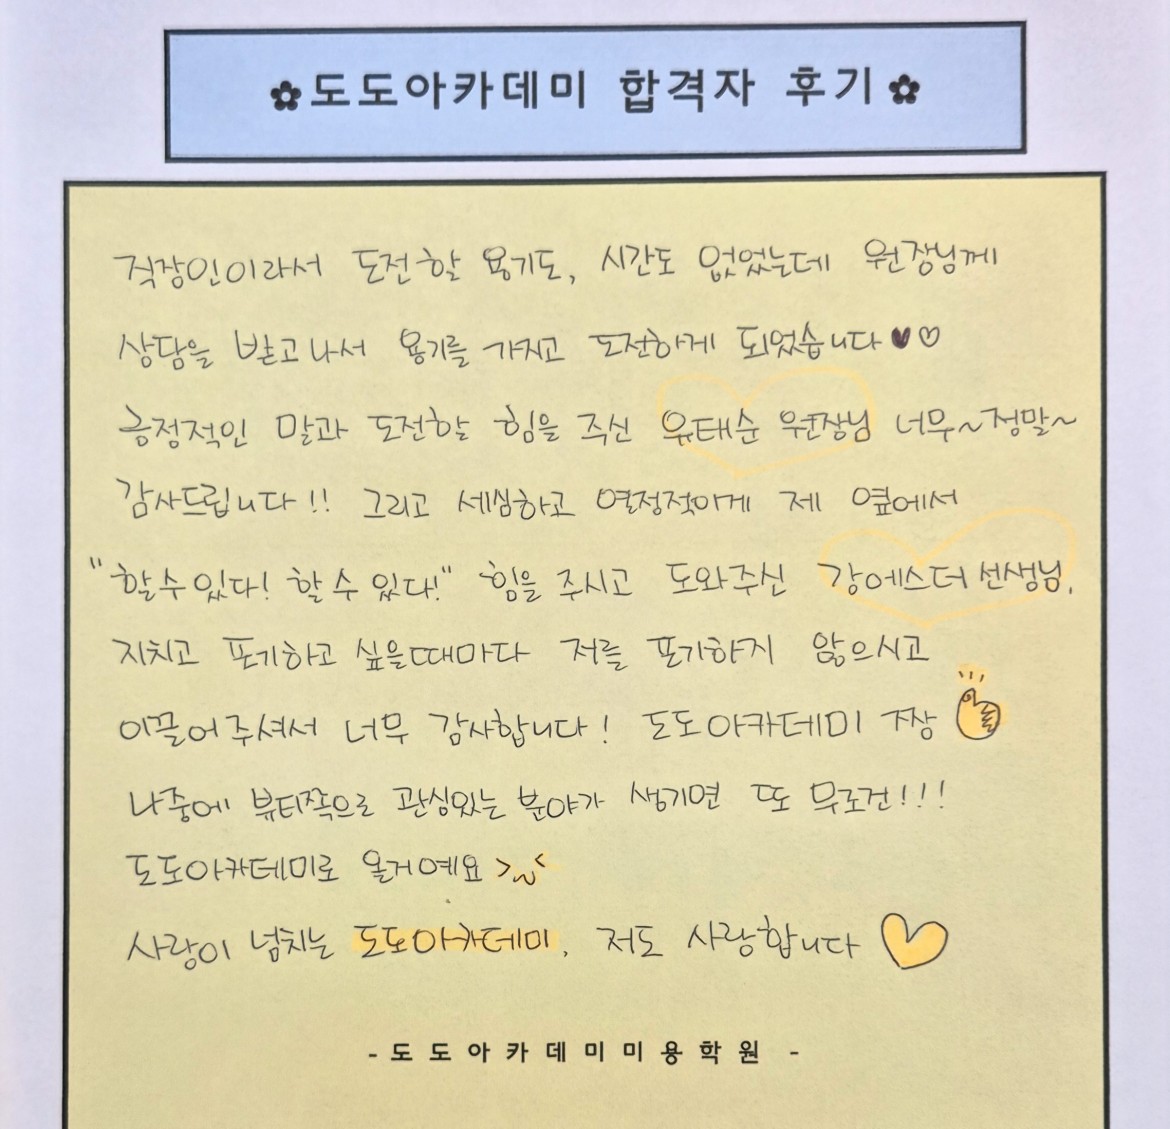 ✿도도아카데미 합격자 후기✿
직장인이라서 도전할 용기도, 시간도 없었는데 원장님께
상담을 받고나서 용기를 가지고 도전하게 되었습니다♥♡
긍정적인 말과 도전할 힘을 주신 유태순 원장님 너무~정말~
감사드립니다!! 그리고 세심하고 열정적이게 제 옆에서
"할수있다! 할수있다!" 힘을 주시고 도와주신 강에스더 선생님,
지치고 포기하고 싶을때마다 저를 포기하지 않으시고
이끌어주셔서 너무 감사합니다! 도도아카데미 짱
나중에 뷰티쪽으로 관심있는 분야가 생기면 또 무조건!!!
도도아카데미로 올거예요
사랑이 넘치는 도도아카데미, 저도 사랑합니다
- 도도아카데미미용학원 -